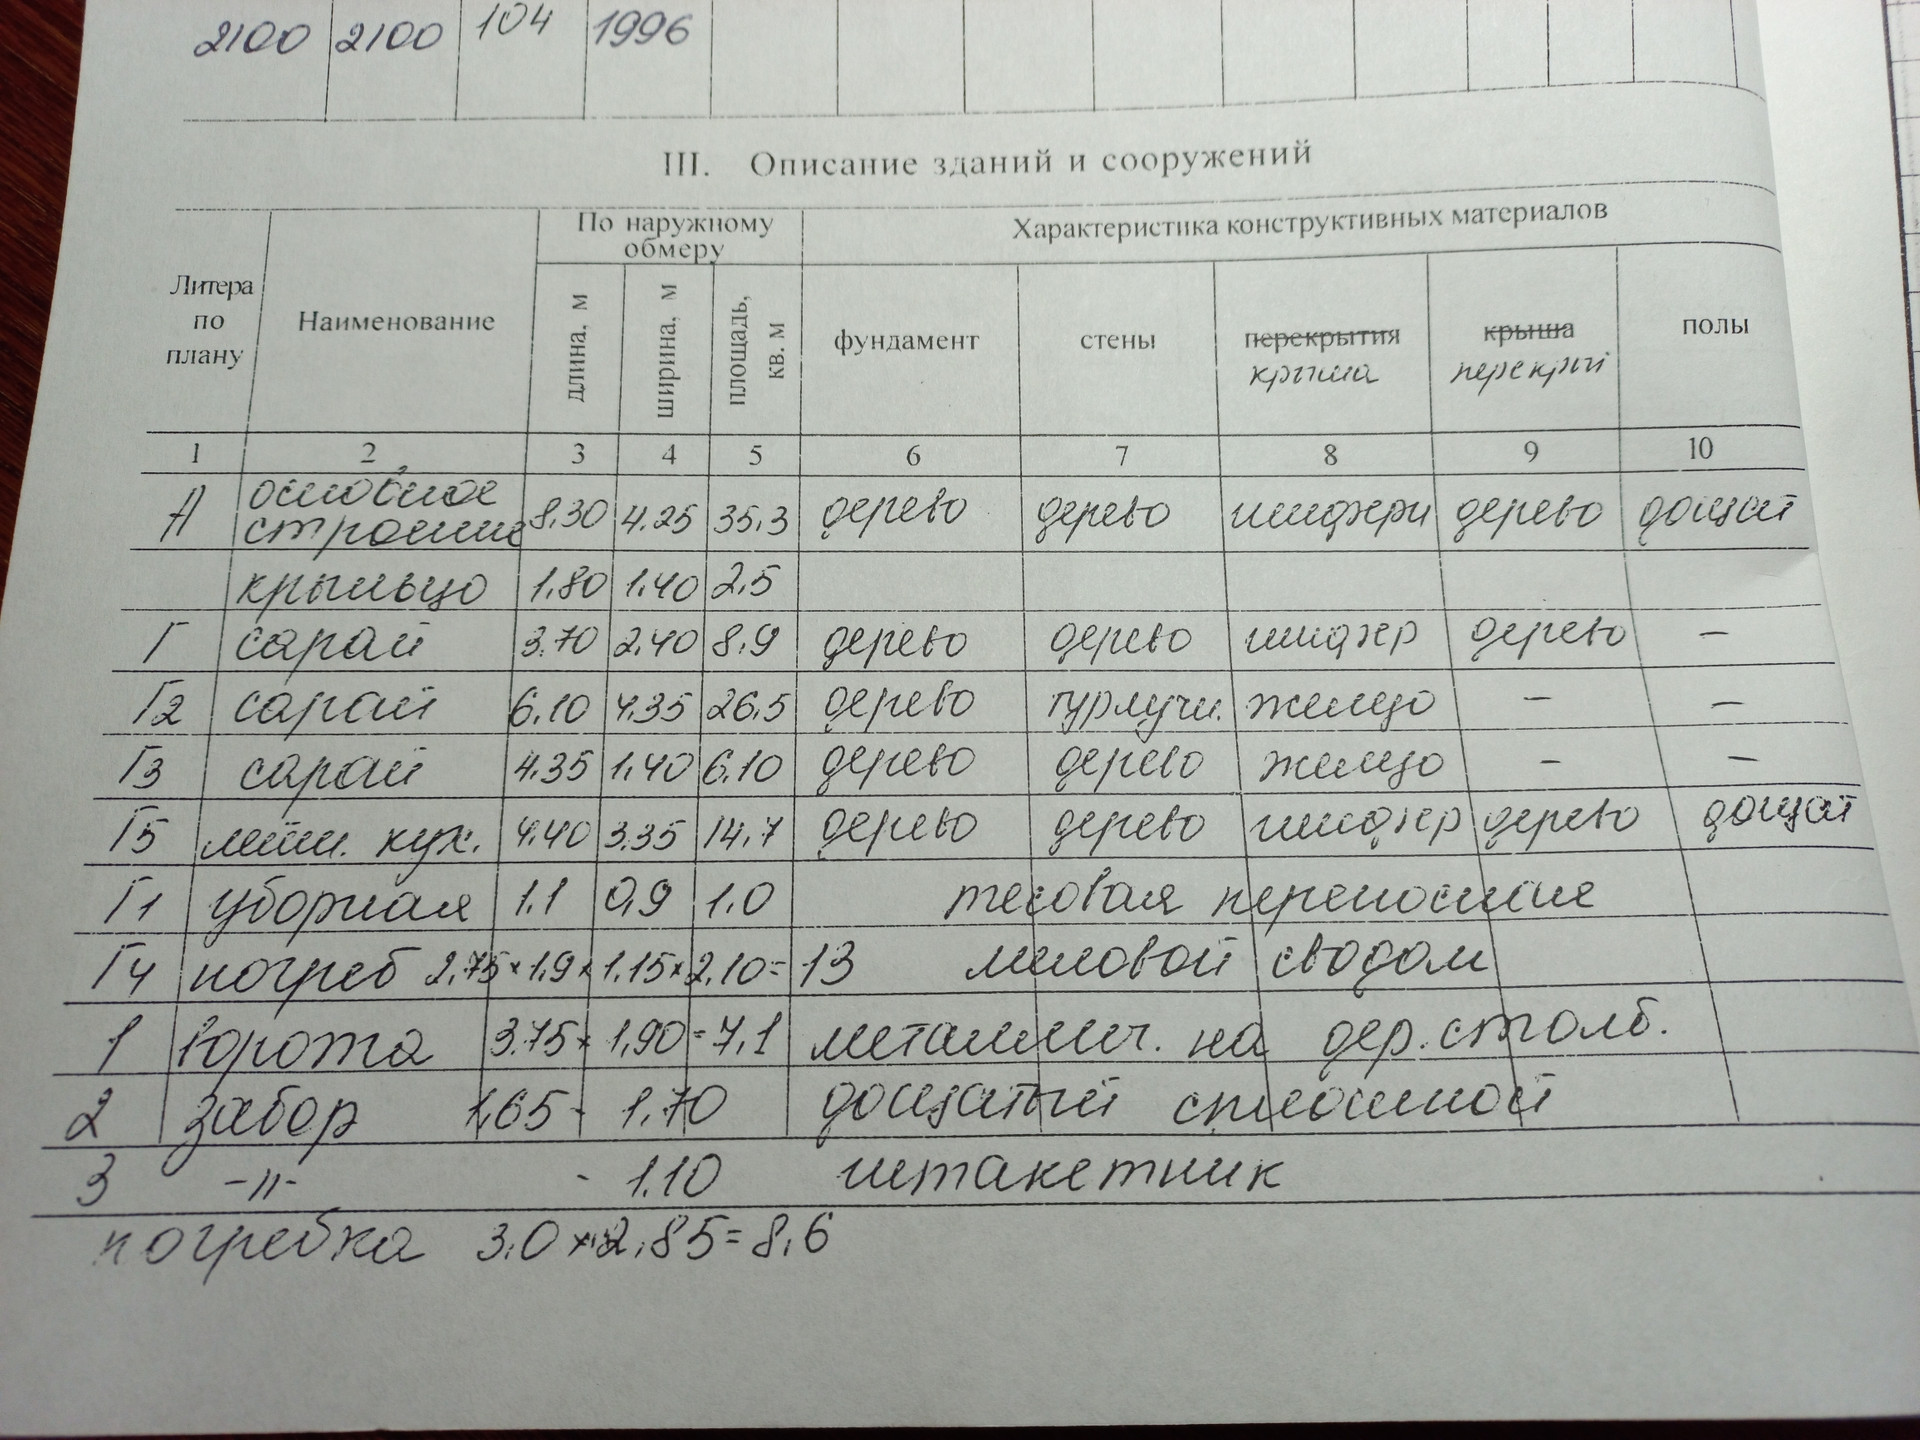 2100 2100 104 1996
III. Описание зданий и сооружений
Литера по плану Наименование По наружному обмеру Характеристика конструктивных материалов
длина, м ширина, м площадь, кв. м фундамент стены перекрытия крыша крыша перекрый полы
1 2 3 4 5 6 7 8 9 10
А основное строение 8.30 4.25 35.3 дерево дерево дерево дощат
крыльцо 1.80 1.40 2.5
Г сарай 3.70 2.40 8.9 дерево дерево шифер дерево –
Г2 сарай 6.10 4.35 26.5 дерево турлучн. железо – –
Г3 сарай 4.35 1.40 6.10 дерево дерево железо – –
Г5 летн. кух. 4.40 3.35 14.7 дерево дерево шифер дерево дощат
Г1 уборная 1.1 0,9 1.0 тесовая переносная
Г4 погреб 2.75 × 1.9 × 1.15 × 2.10 = 13 меловой сводом
1 ворота 3.75 × 1,90 = 7,1 металлич. на дер. столб.
2 забор 1,65 - 1.70 дощатый сплошной
3 -"- - 1.10 штакетник
погребка 3,0 × 2,85 = 8,6